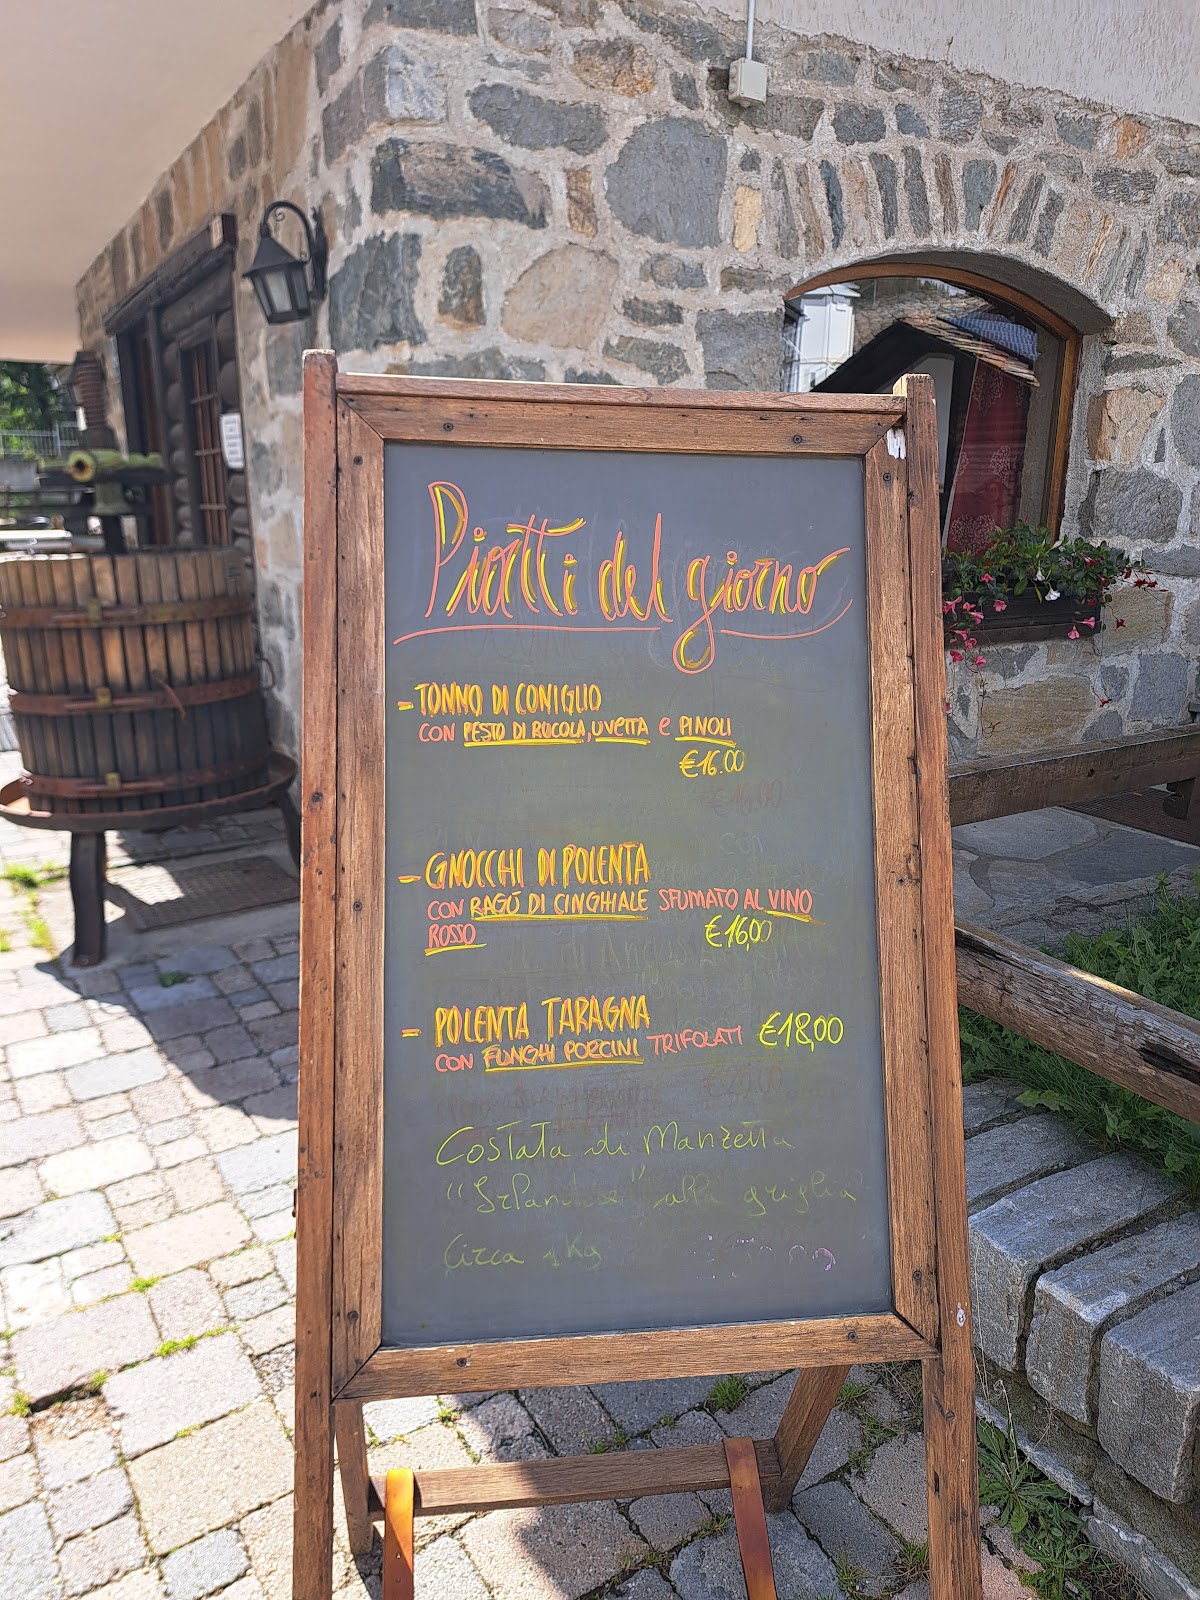 Piatti del giorno
- TONNO DI CONIGLIO
CON PESTO DI RUCOLA, UVETTA e PINOLI
€16.00
- GNOCCHI DI POLENTA
CON RAGÚ DI CINGHIALE SFUMATO AL VINO
ROSSO €16,00
- POLENTA TARAGNA
CON FUNGHI PORCINI TRIFOLATI €18,00
Costata di Manzetta
"Irlandese" alla griglia
Circa 1 Kg